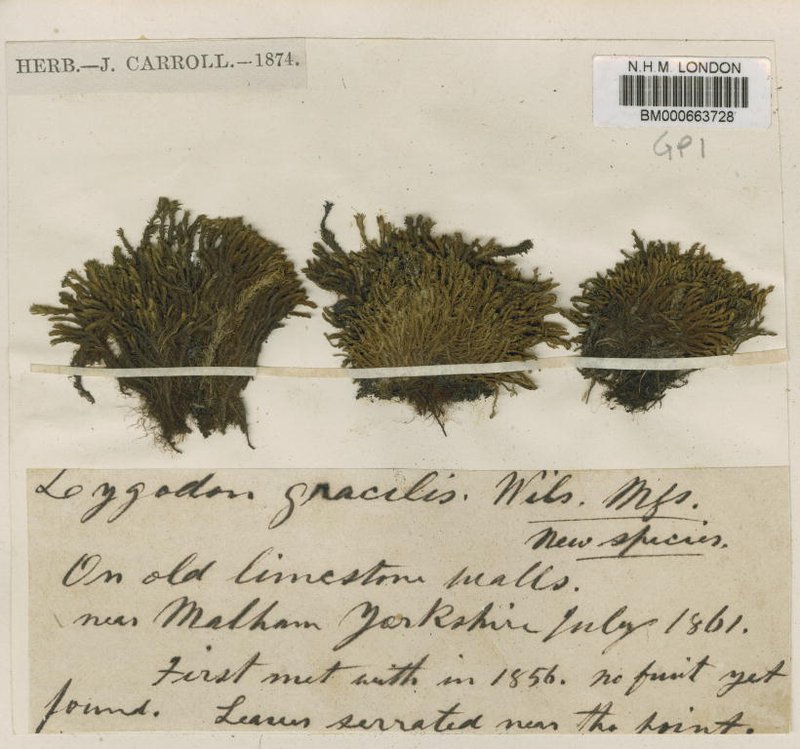 HERB.—J. CARROLL.—1874.
N.H.M. LONDON
BM000663728
GP1
Zygodon gracilis. Wils. Mſs.
New species.
On old limestone walls.
near Malham Yorkshire July 1861.
First met with in 1856. no fruit yet
found. Leaves serrated near the point.